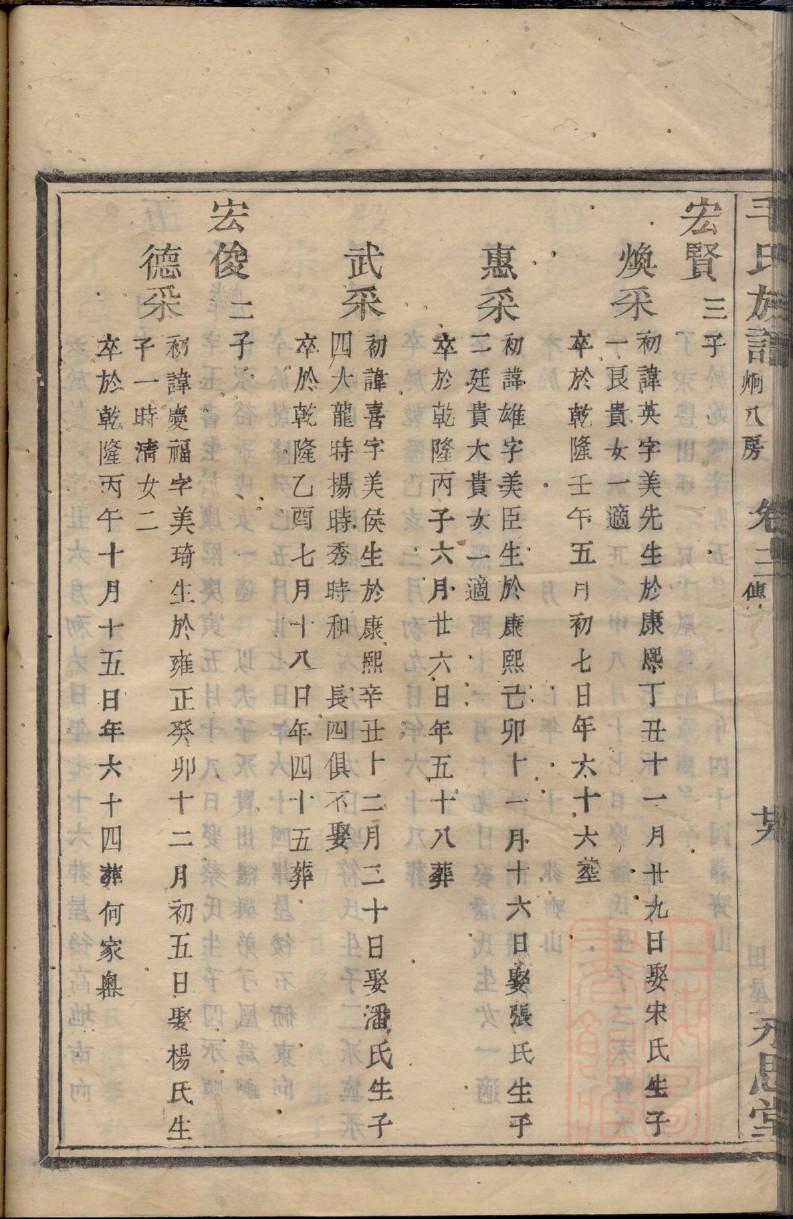 毛氏族譜 炯八房 卷十二傳 芄 永思堂
宏賢 三子
煥采 初諱英字美先生於康熙丁丑十一月廿九日娶宋氏生子
一良貴女一適
卒於乾隆壬午五月初七日年六十六塟
惠采 初諱雄字美臣生於康熙己卯十一月十六日娶張氏生子
二廷貴大貴女一適
卒於乾隆丙子六月廿六日年五十八葬
武采 初諱喜字美侯生於康熙辛丑十二月二十日娶潘氏生子
四大龍時揚時秀時和 長四俱不娶
卒於乾隆乙酉七月十八日年四十五葬
宏俊 二子
德采 初諱慶福字美琦生於雍正癸卯十二月初五日娶楊氏生
子一時濟女二
卒於乾隆丙午十月十五日年六十四葬何家嶴